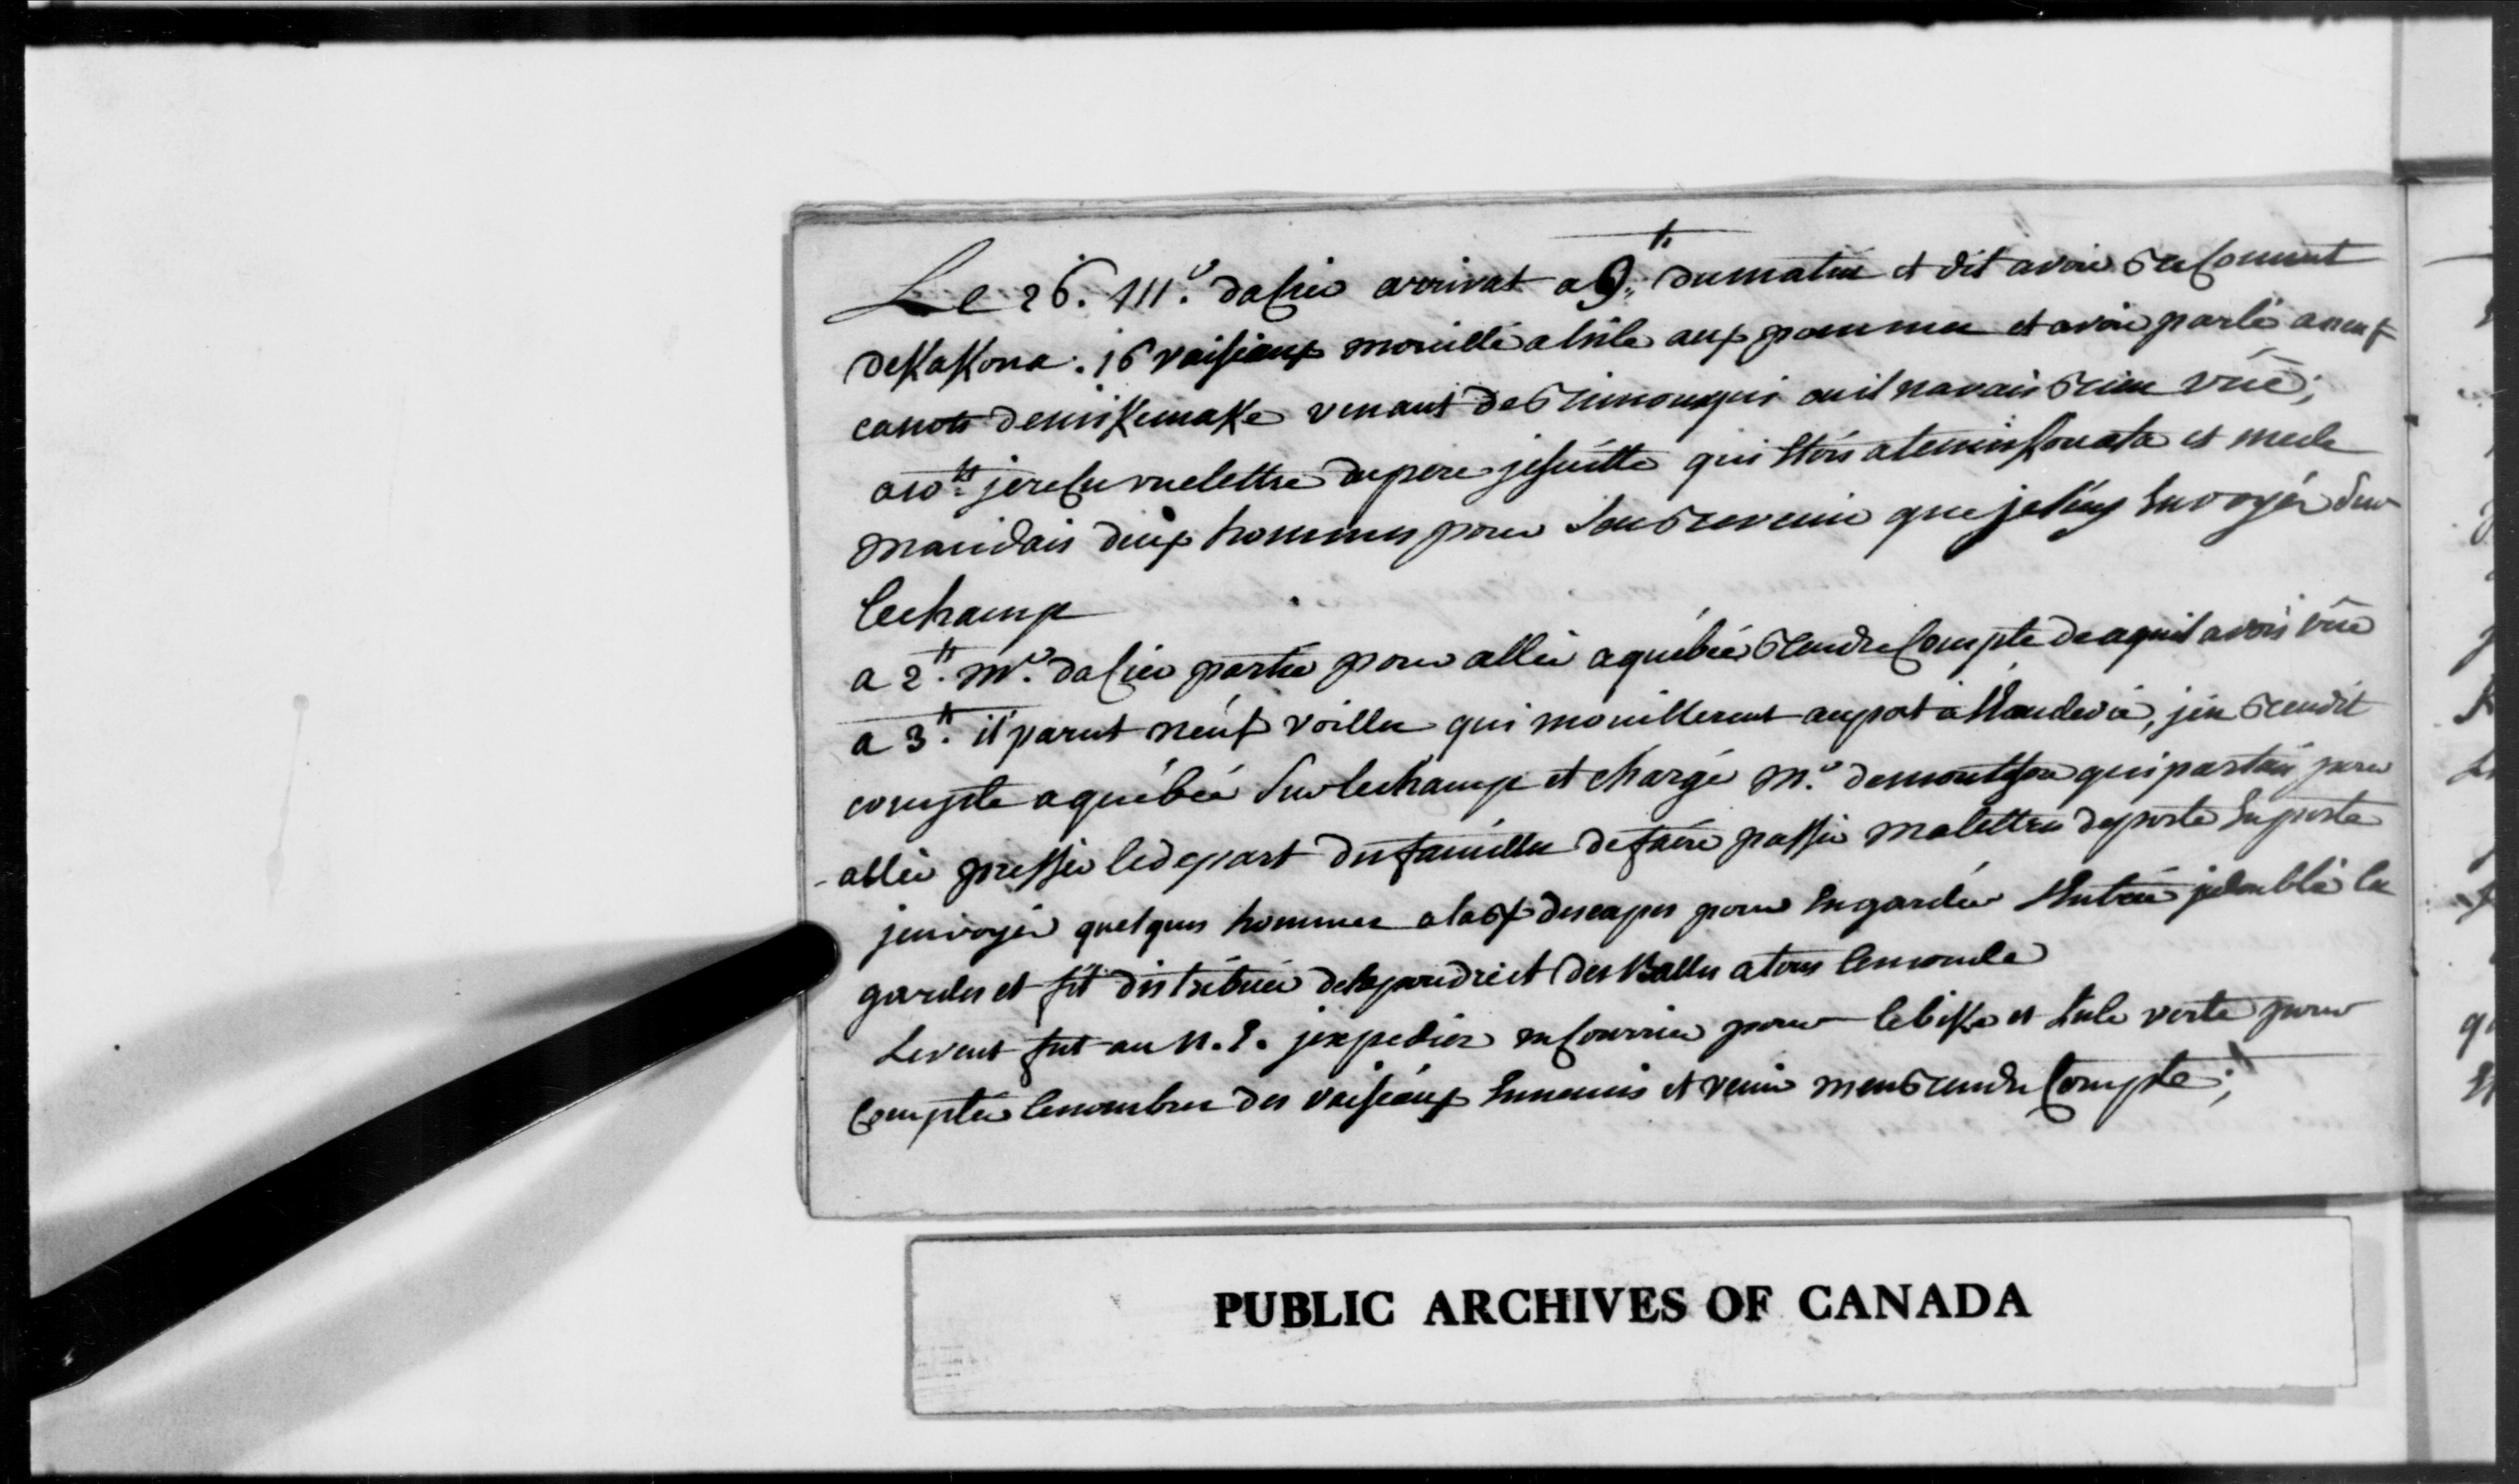 Le 26. Mr. dacier arrivat a 9h. du matin et dit avoir reconnut
de KaKona. 16 vaiseaux mouillé a lisle aux pommes et avoir parlé a neuf
canots de miKemaKe venant de rimouqui ou il navais rien vüe;
a 10h. je recu une lettre du pere jesuitte qui étois a et me de
mandais deux hommes pour sen revenir que je luy envoyér sur
lechamp
a 2h. Mr. dacier partie pour aller a quebéc rendre compte de aquil avois vüe
a 3h. il parut neuf voilles qui mouillerent au pot a Léaudevie, jen rendit
compte a quebéc sur lechamp et chargé Mr. qui partais pour
aller presser ledepart des familles de faire passer ma lettre de poste en poste
jenvoyér quelques hommes a la descapes pour en garder Lentrée je doublé les
gardes et fit distribuer de la poudre et des Balles a tous lemonde
Levent fut au N.E. jexpedier un courrier pour lebiKe et Lisle verte pour
compter lenombre des vaiseaux Ennemis et venir men rendre Compte;
PUBLIC ARCHIVES OF CANADA